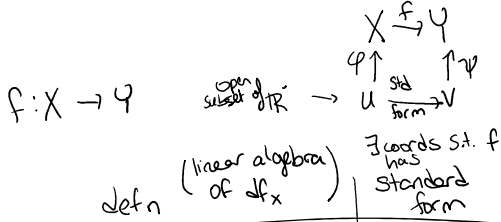 X f→ Y
φ↑ ↑ψ
f : X → Y
open subset of ℝⁿ → U std form→ V
defn
(linear algebra of df_x)
∃ coords s.t. f has standard form